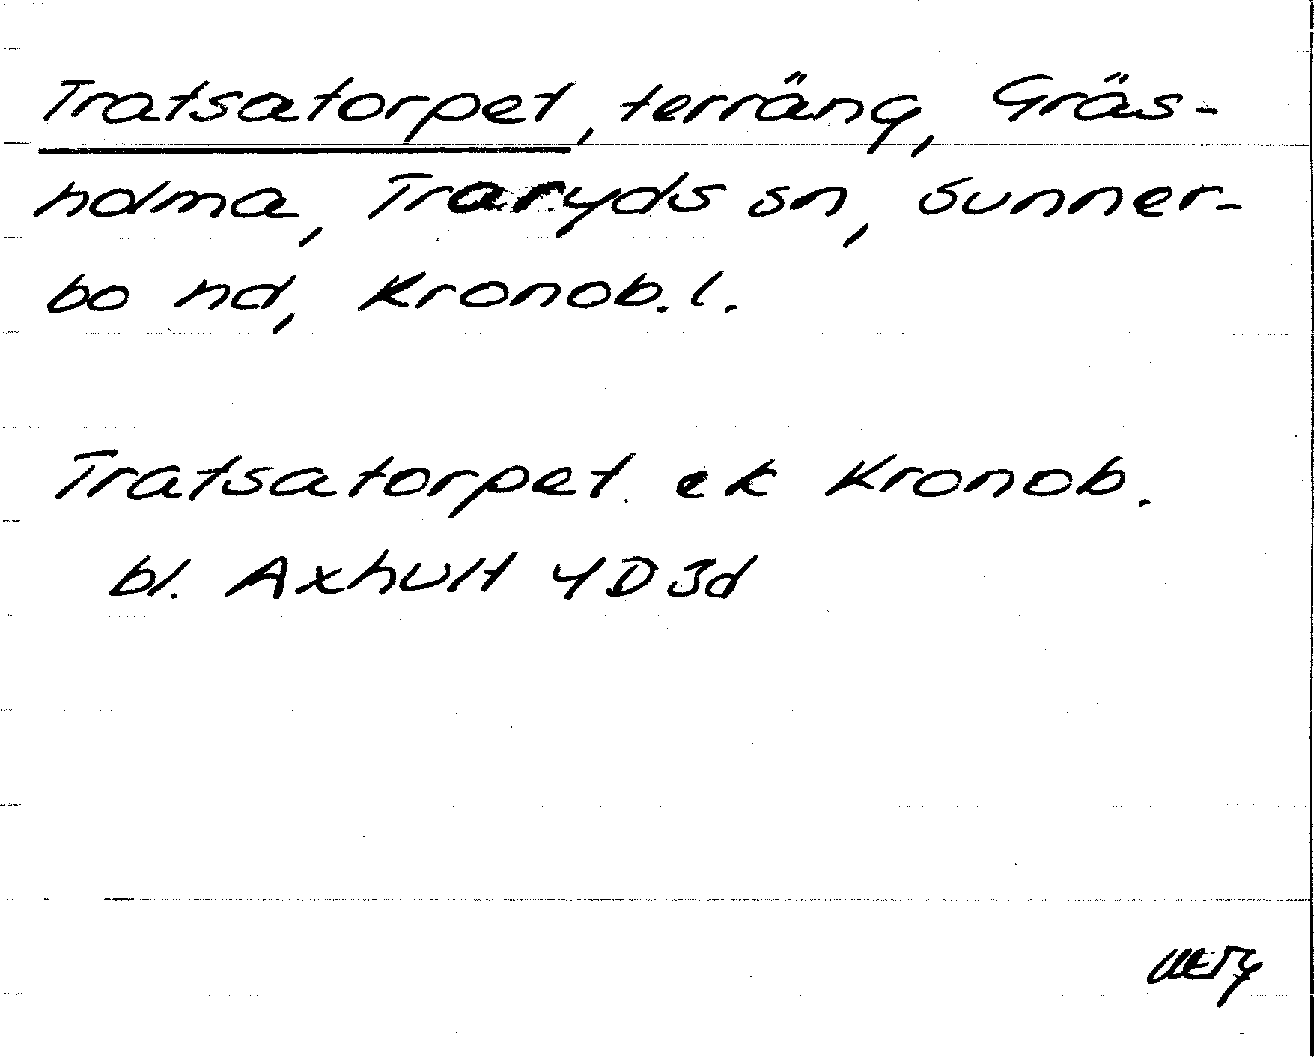 Tratsatorpet, terräng, Gräs-
holma, Traryds sn, Sunner-
bo hd, Kronob. l.
Tratsatorpet ek Kronob.
bl. Axhult 4D3d